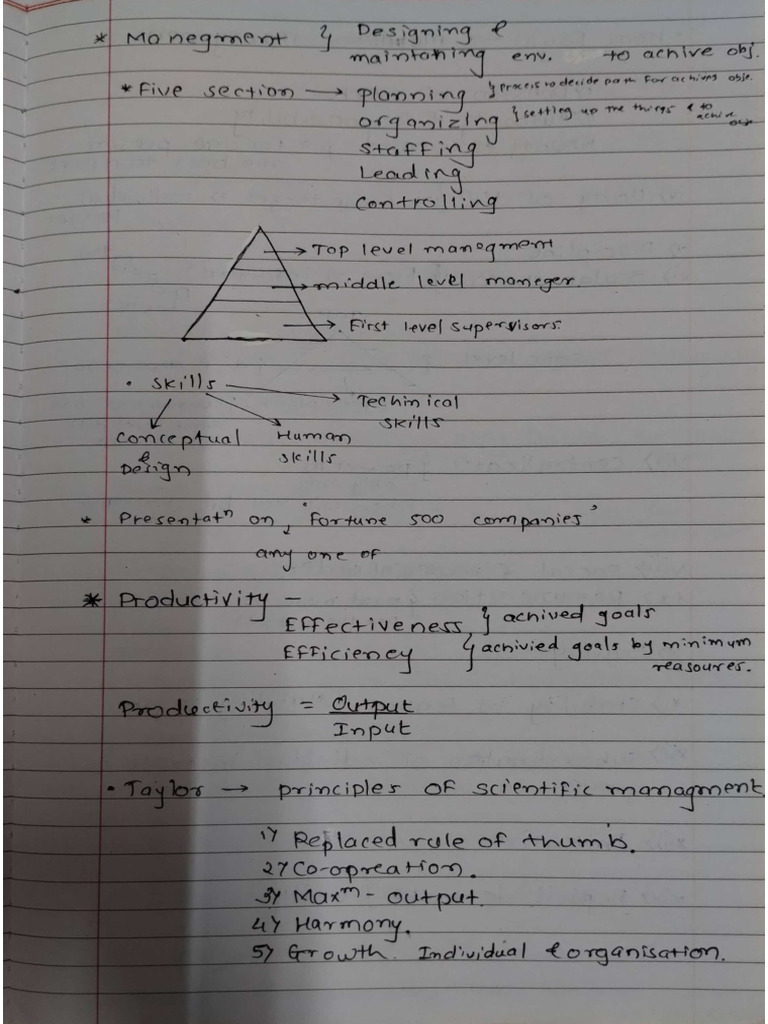 * Monegment } Designing &
maintaning env. to achive obj.
* Five section → planning } process to decide path for achiving obje.
organizing } setting up the things & to achive obje
staffing
Leading
controlling
→ Top level managment
→ middle level maneger.
→ First level supervisors.
• skills → Techinical skills
conceptual & Design
Human skills
* Presentatⁿ on, 'Fortune 500 companies'
any one of
* Productivity –
Effectiveness } achived goals
Efficiency } achivied goals by minimum
reasoures.
Productivity = Output
Input
• Taylor → principles of scientific managment
1) Replaced rule of thumb.
2) Co-opreation.
3) Maxᵐ - output.
4) Harmony.
5) Growth. Individual & organisation.